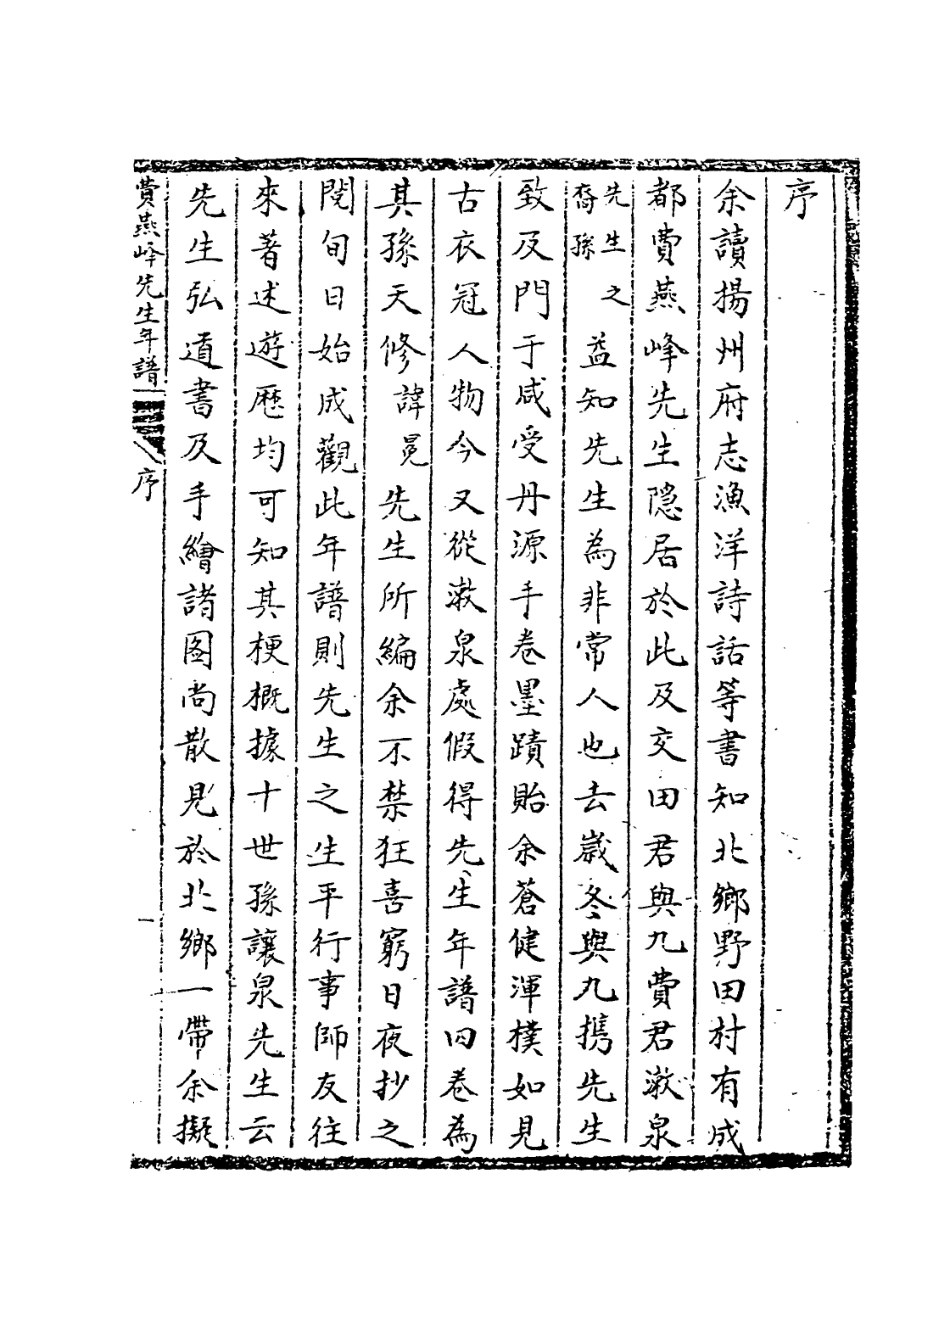 序
余讀揚州府志漁洋詩話等書知北鄉野田村有成
都費燕峰先生隠居於此及交田君與九費君漱泉
先生之裔孫益知先生為非常人也去嵗冬與九携先生
致及門于咸受丹源手卷墨蹟貽余蒼健渾樸如見
古衣冠人物今又從漱泉處假得先生年譜四卷為
其孫天修諱冕先生所編余不禁狂喜窮日夜抄之
閱旬日始成觀此年譜則先生之生平行事師友往
來著述遊歷均可知其梗概據十世孫讓泉先生云
先生弘道書及手繪諸图尚散見於北鄉一帶余擬
費燕峰先生年譜 序 一